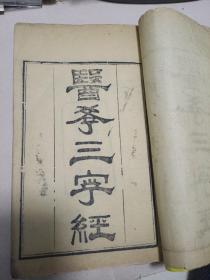 醫學三字經